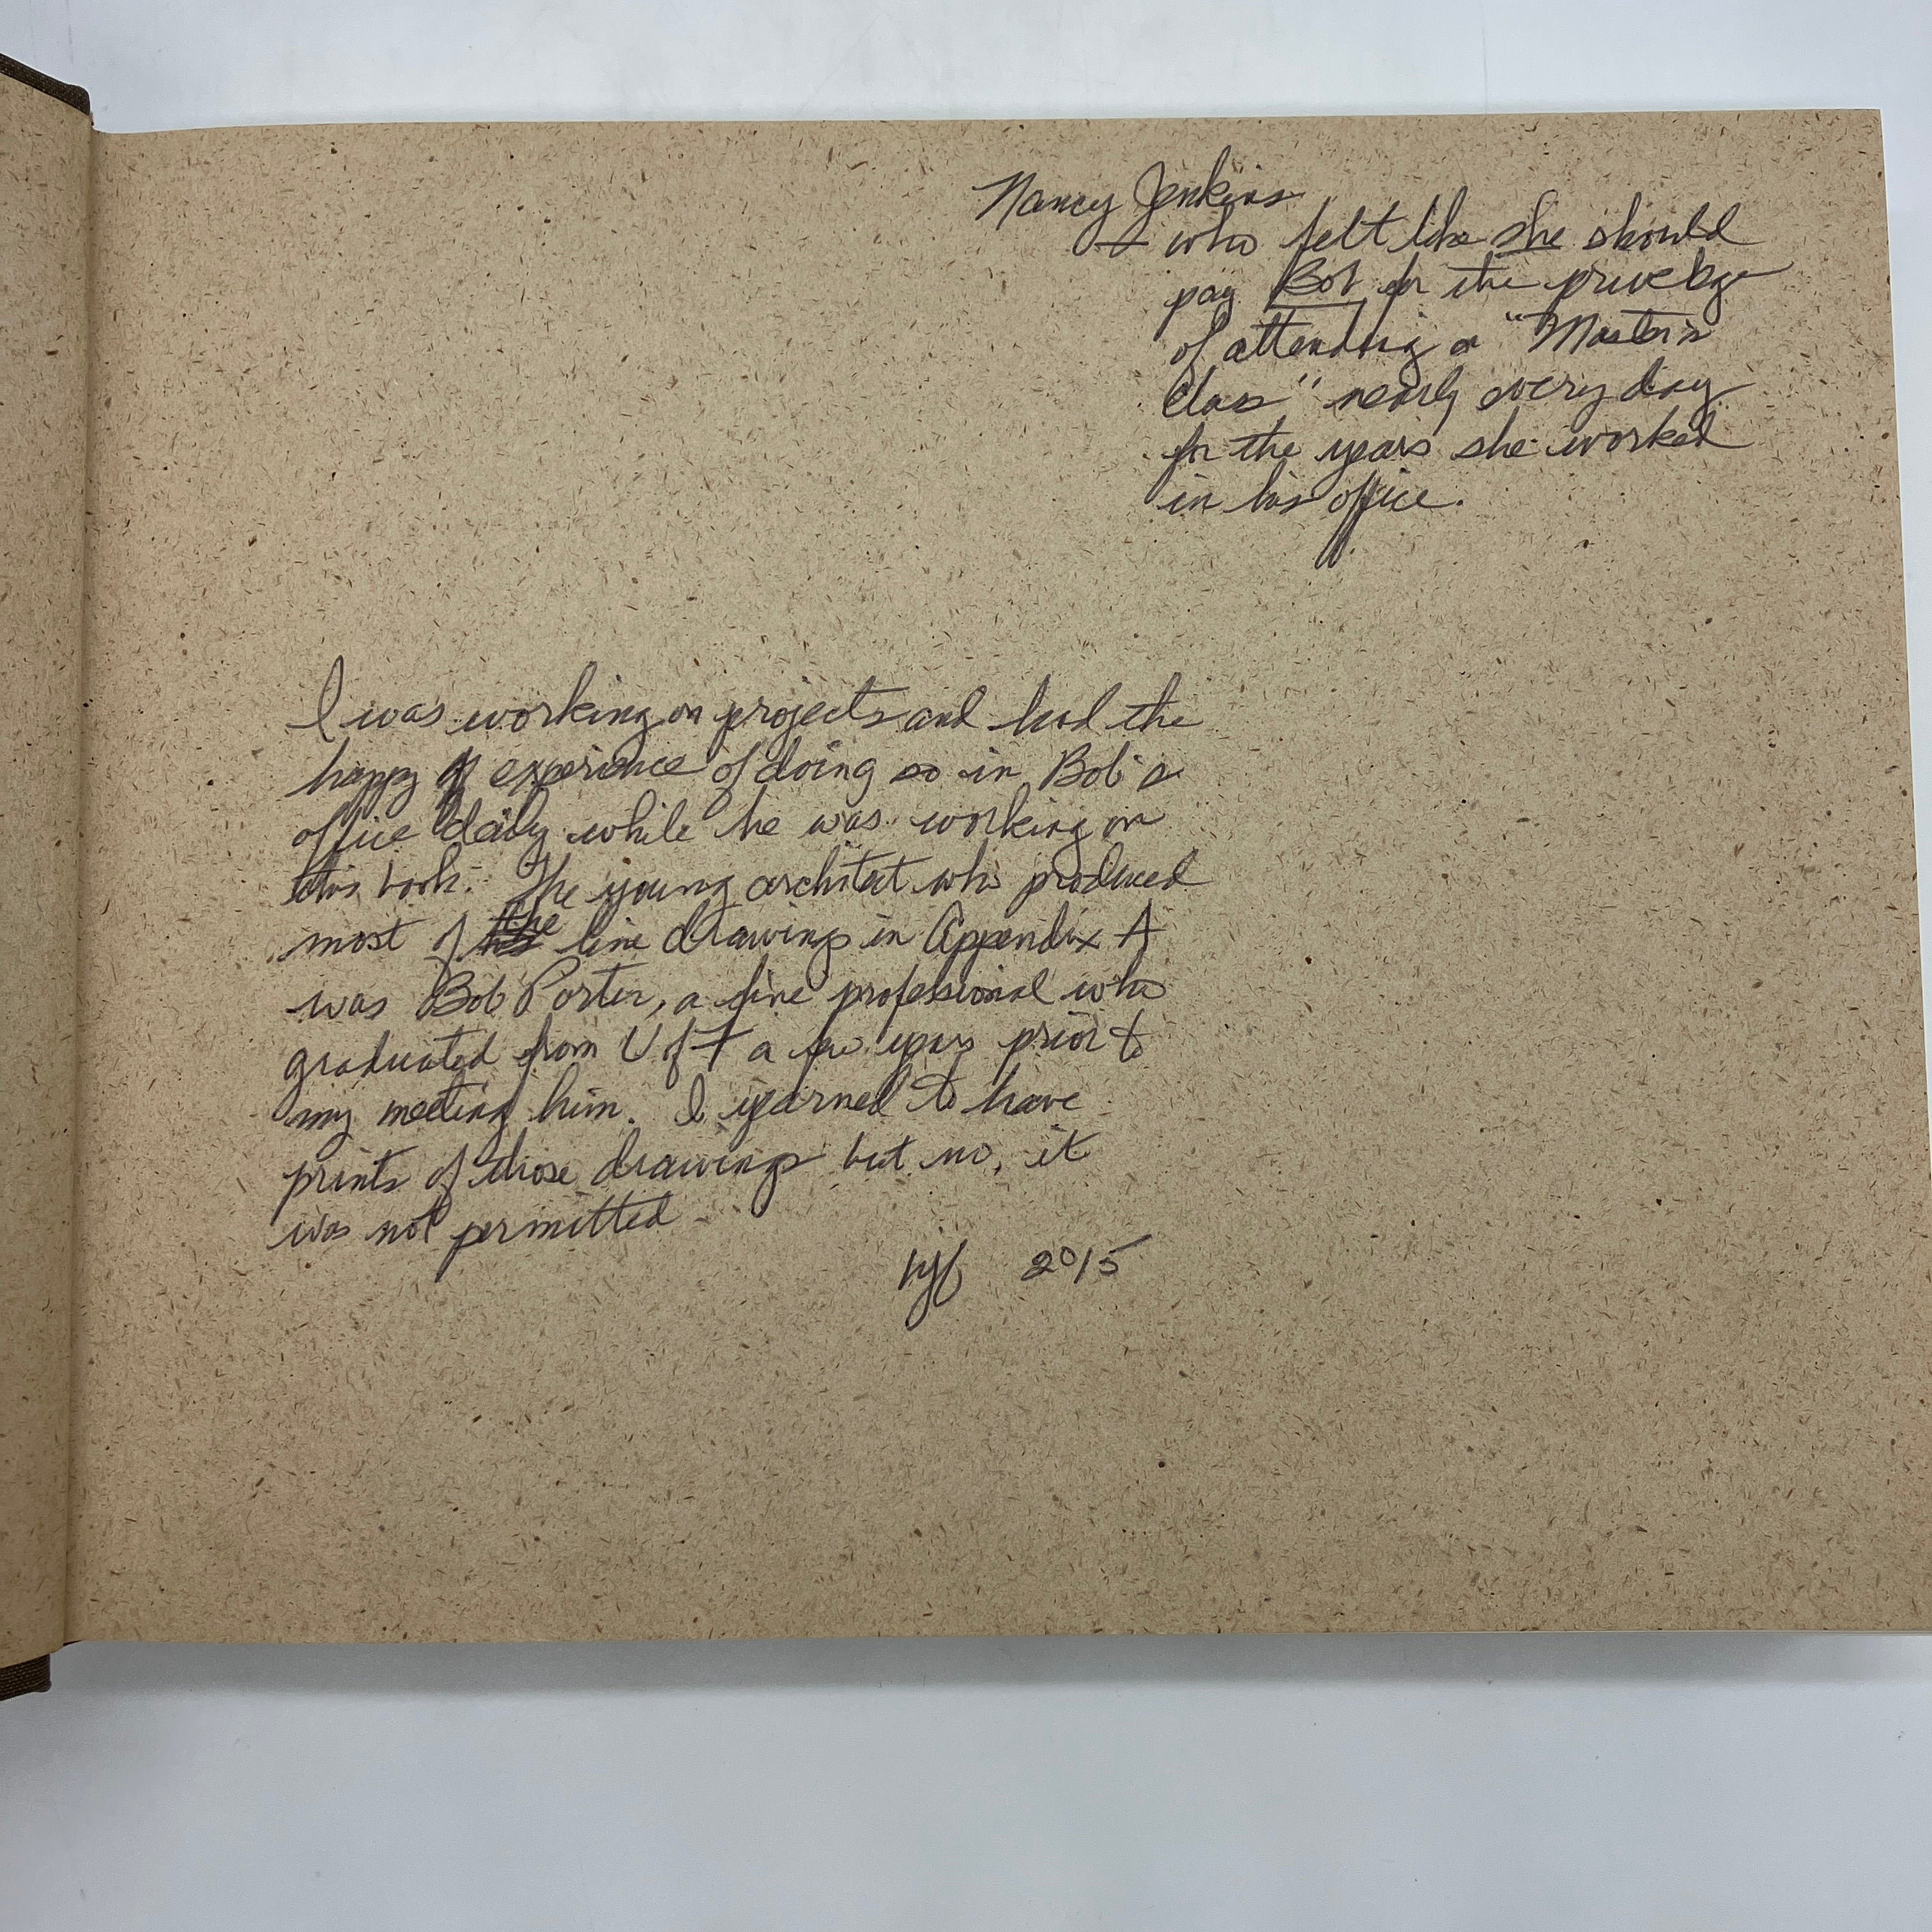 Nancy Jenkins
— who felt like she should
pay Bob for the privelege
of attending a "Master's
Class" nearly every day
for the years she worked
in his office.
I was working on projects and had the
happy experience of doing so in Bob's
office daily while he was working on
this book. The young architect who produced
most of the line drawings in Appendix A
was Bob Porter, a fine professional who
graduated from U of F a few years prior to
my meeting him. I yearned to have
prints of those drawings but no, it
was not permitted -
2015